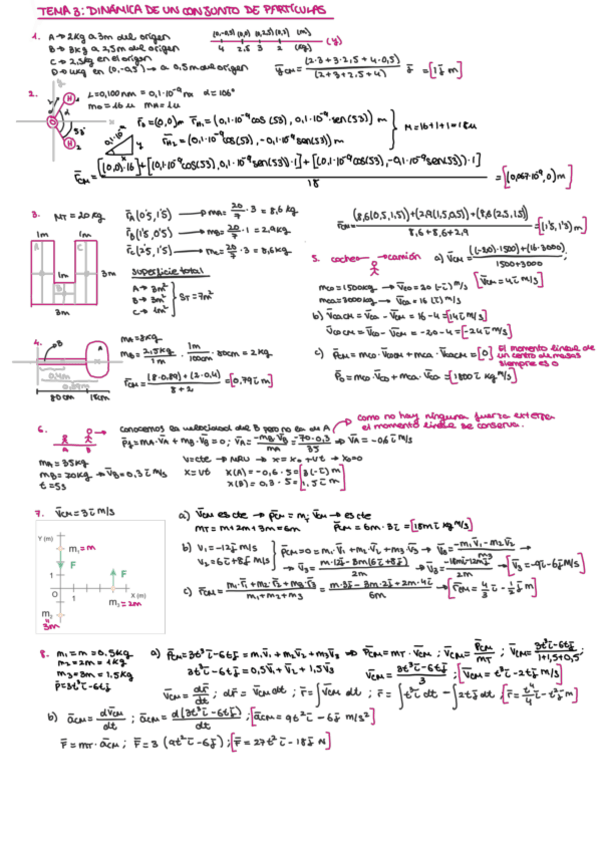 TEMA 3: DINÁMICA DE UN CONJUNTO DE PARTÍCULAS
1. A → 2kg a 3m del origen
B → 3kg a 2,5m del origen
C → 2,5kg en el origen
D → 4kg en (0,-0,5) → a 0,5m del origen
(0,-0,5) (0,0) (0,2,5) (0,3) (m)
4 2,5 3 2 (kg) (y)
y̅cm = (2·3+3·2,5+4·0,5)/(2+3+2,5+4) j̄ = [1 j̄ m]
2. L=0,100nm = 0,1·10⁻⁹m α=106°
mo = 16u mH = 1u
r̄o=(0,0)m r̄H1=(0,1·10⁻⁹cos(53), 0,1·10⁻⁹·sen(53))m
r̄H2=(0,1·10⁻⁹cos(53),-0,1·10⁻⁹sen(53))m
M=16+1+1=18u
r̄cm = [(0,0)·16]+[(0,1·10⁻⁹cos(53), 0,1·10⁻⁹sen(53))·1]+[(0,1·10⁻⁹cos(53),-0,1·10⁻⁹sen(53))·1] / 18 = [(0,067·10⁻⁹,0)m]
3. MT = 20kg
r̄A(0'5,1'5) → mA = 20/7 · 3 = 8,6kg
r̄B(1'5,0'5) → mB = 20/7 · 1 = 2,9kg
r̄C(2'5,1'5) → mC = 20/7 · 3 = 8,6kg
r̄cm = (8,6(0,5,1,5))+(2,9(1,5,0,5))+(8,6(2,5,1,5)) / 8,6+8,6+2,9 = [(1'5,1'3)m]
1m 1m
A C
1m
B
3m
3m
superficie total
A → 3m²
B → 3m²
C → 4m²
ST = 7m²
4. B A
0,4m
0,89m
80cm 18cm
mA = 8kg
mB = 2,5kg/1m · 1m/100cm · 80cm = 2kg
r̄cm = (8·0,89)+(2·0,4) / 8+2 = [0,79 ī m]
5. coche camión a) v̄cm = ((-20)·1500)+(16·3000) / 1500+3000 ;
[v̄cm = 4 ī m/s]
mco = 1500kg → v̄co = 20 (-ī) m/s
mca = 3000kg → v̄ca = 16 (ī) m/s
b) v̄cacm = v̄ca - v̄cm = 16-4 = [14 ī m/s]
v̄cocm = v̄co - v̄cm = -20-4 = [-24 ī m/s]
c) p̄cm = mco·v̄cocm + mca·v̄cacm = [0] El momento lineal de un centro de masas siempre es 0
p̄o = mco·v̄co + mca·v̄ca = [18000 ī kg m/s]
6. A B
conocemos la velocidad del B pero no la de A
como no hay ninguna fuerza externa el momento lineal se conserva.
p̄f = mA·v̄A + mB·v̄B = 0 ; v̄A = -mB·v̄B / mA = -70·0,3 / 35 ⇒ v̄A = -0,6 ī m/s
mA = 35kg
mB = 70kg → v̄B = 0,3 ī m/s
t = 5s
v=cte → MRU → x = x₀ + vt → x₀=0
x=vt x(A) = -0,6 · 5 = [3(-ī) m]
x(B) = 0,3 · 5 = [1,5 ī m]
7. v̄cm = 3 ī m/s
Y (m)
m₁ = m
F
F
1
O 1 X (m)
m₃ = 2m
m₂
3m
a) v̄cm es cte → p̄cm = mT·v̄cm → es cte
mT = m+2m+3m = 6m p̄cm = 6m·3ī = [18m ī kg m/s]
b) v₁ = -12 j̄ m/s
v₂ = 6ī+8j̄ m/s
p̄cm = 0 = m₁·v̄₁ + m₂·v̄₂ + m₃·v̄₃ → v̄₃ = -m₁v̄₁-m₂v̄₂ / m₃ →
→ v̄₃ = m·12j̄ - 3m(6ī+8j̄) / 2m → v̄₃ = -18mī-12mj̄ / 2m → [v̄₃ = -9ī-6j̄ m/s]
c) r̄cm = m₁·r̄₁+m₂·r̄₂+m₃·r̄₃ / m₁+m₂+m₃ = m·3j̄ - 3m·2j̄ + 2m·4ī / 6m → [r̄cm = 4/3 ī - 1/2 j̄ m]
8. m₁ = m = 0,5kg
m₂ = 2m = 1kg
m₃ = 3m = 1,5kg
p̄=3t³ī - 6tj̄
a) p̄cm = 3t³ī - 6tj̄ = m₁v̄₁ + m₂v̄₂ + m₃v̄₃ ⇒ p̄cm = mT·v̄cm ; v̄cm = p̄cm / mT ; v̄cm = 3t³ī-6tj̄ / 1+1,5+0,5 ;
3t³ī - 6tj̄ = 0,5v̄₁ + v̄₂ + 1,5v̄₃ v̄cm = 3t³ī-6tj̄ / 3 ; [v̄cm = t³ī - 2tj̄ m/s]
v̄cm = dr̄/dt ; dr̄ = v̄cm dt ; r̄ = ∫v̄cm dt ; r̄ = ∫t³ī dt - ∫2tj̄ dt ; [r̄ = t⁴/4 ī - t²j̄ m]
b) ācm = dv̄cm / dt ; ācm = d(3t³ī-6tj̄) / dt ; [ācm = 9t²ī - 6j̄ m/s²]
F̄ = mT·ācm ; F̄ = 3 (9t²ī - 6j̄) ; [F̄ = 27t²ī - 18j̄ N]